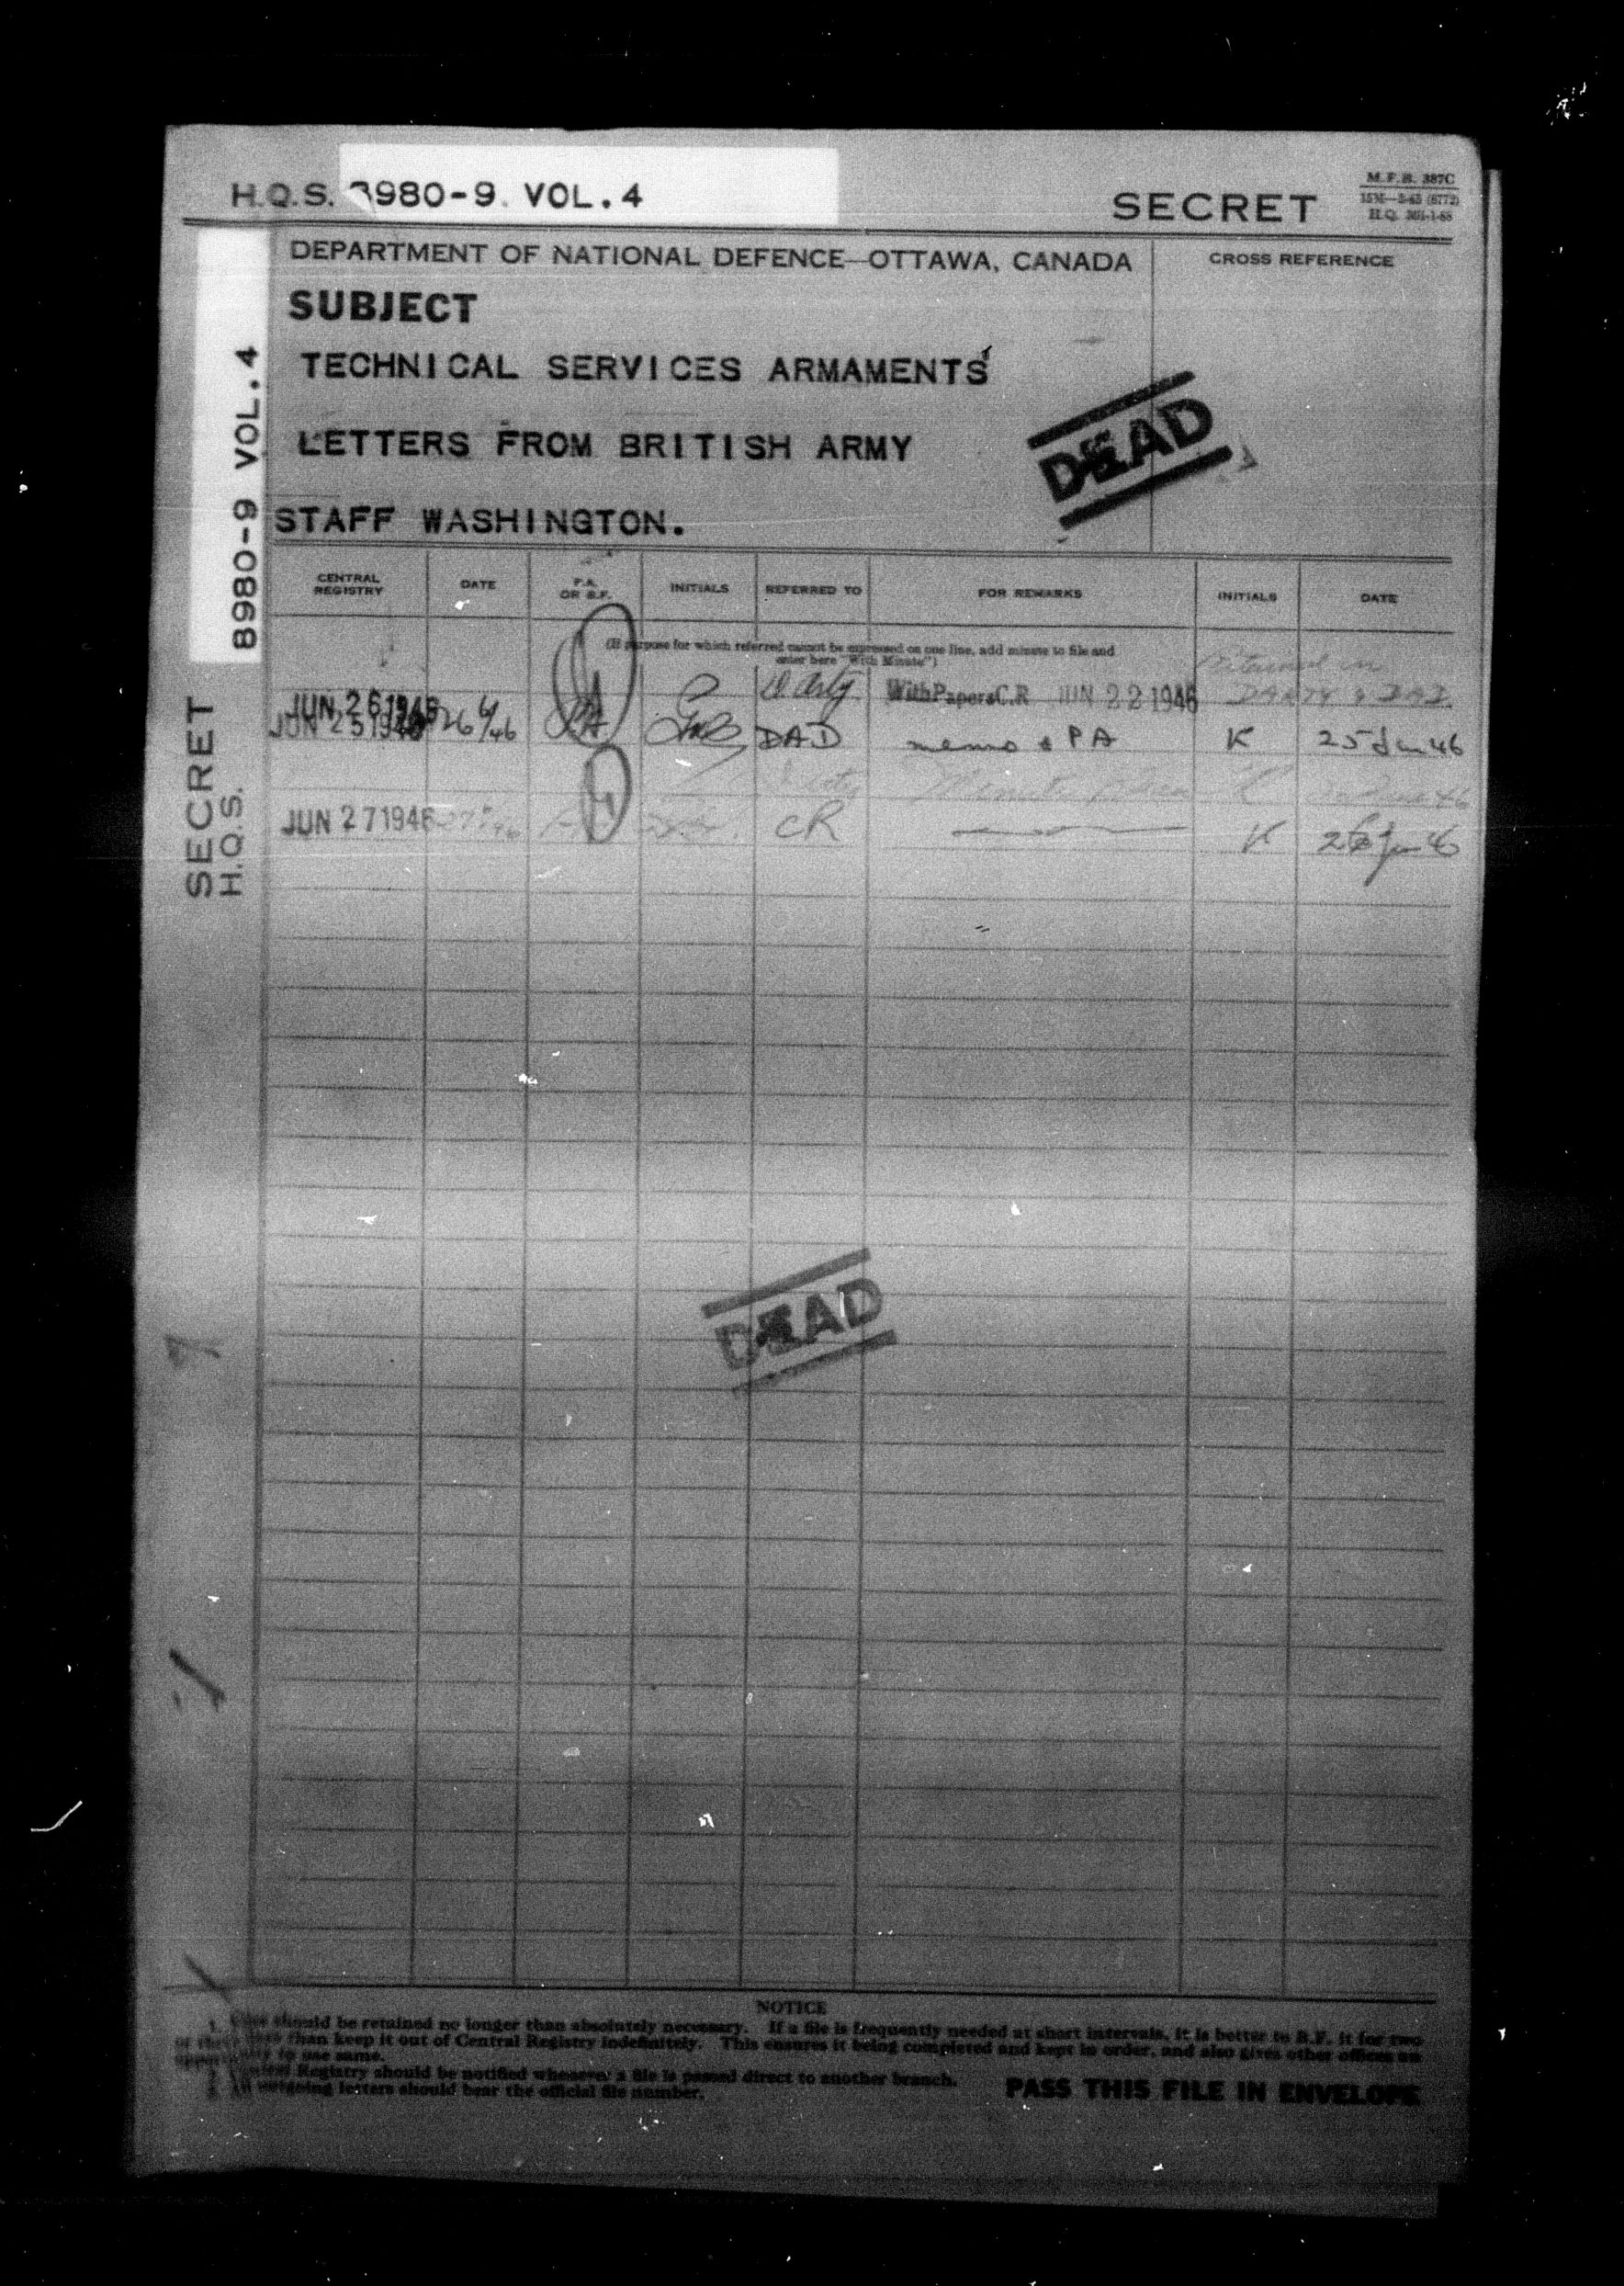 H.Q.S. 8980-9 VOL.4
SECRET
M.F.B. 387C
H.Q.
DEPARTMENT OF NATIONAL DEFENCE—OTTAWA, CANADA
CROSS REFERENCE
SUBJECT
TECHNICAL SERVICES ARMAMENTS
LETTERS FROM BRITISH ARMY
STAFF WASHINGTON.
DEAD
8980-9 VOL.4
SECRET
H.Q.S.
CENTRAL REGISTRY DATE P.A. OR B.F. INITIALS REFERRED TO FOR REMARKS INITIALS DATE
(If purpose for which referred cannot be expressed on one line, add minute to file and
enter here "With Minute")
JUN 26 1946 D Arty With Papers C.R JUN 22 1946
JUN 25 1946 PA DAD memo & PA K 25 Jun 46
JUN 27 1946 CR K
DEAD
NOTICE
1. Files should be retained no longer than absolutely necessary. If a file is frequently needed at short intervals, it is better to B.F. it for two
or three days than keep it out of Central Registry indefinitely. This ensures it being completed and kept in order, and also gives other offices an
opportunity to use same.
2. Central Registry should be notified whenever a file is passed direct to another branch.
3. All outgoing letters should bear the official file number.
PASS THIS FILE IN ENVELOPE